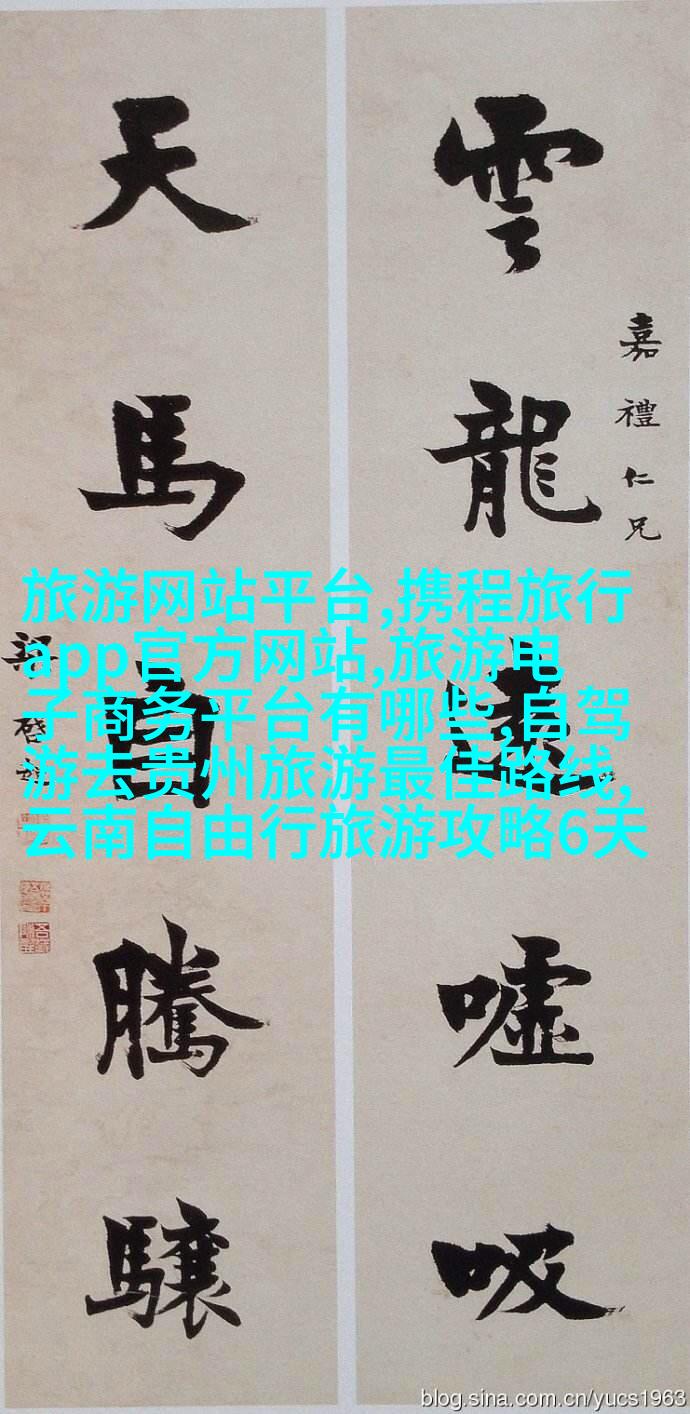 雲龍遠噓吸
嘉禮仁兄
天馬自騰驤
梁啓
旅游网站平台,携程旅行
app官方网站,旅游电
子商务平台有哪些,自驾
游去贵州旅游最佳路线,
云南自由行旅游攻略6天
blog.sina.com.cn/yucs1963